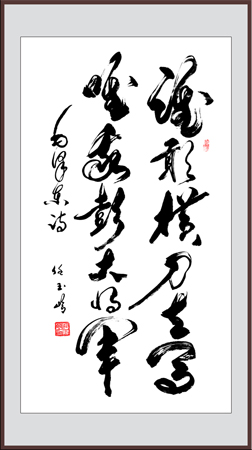 谁敢横刀立马
唯我彭大将军
毛泽东诗
任玉岭